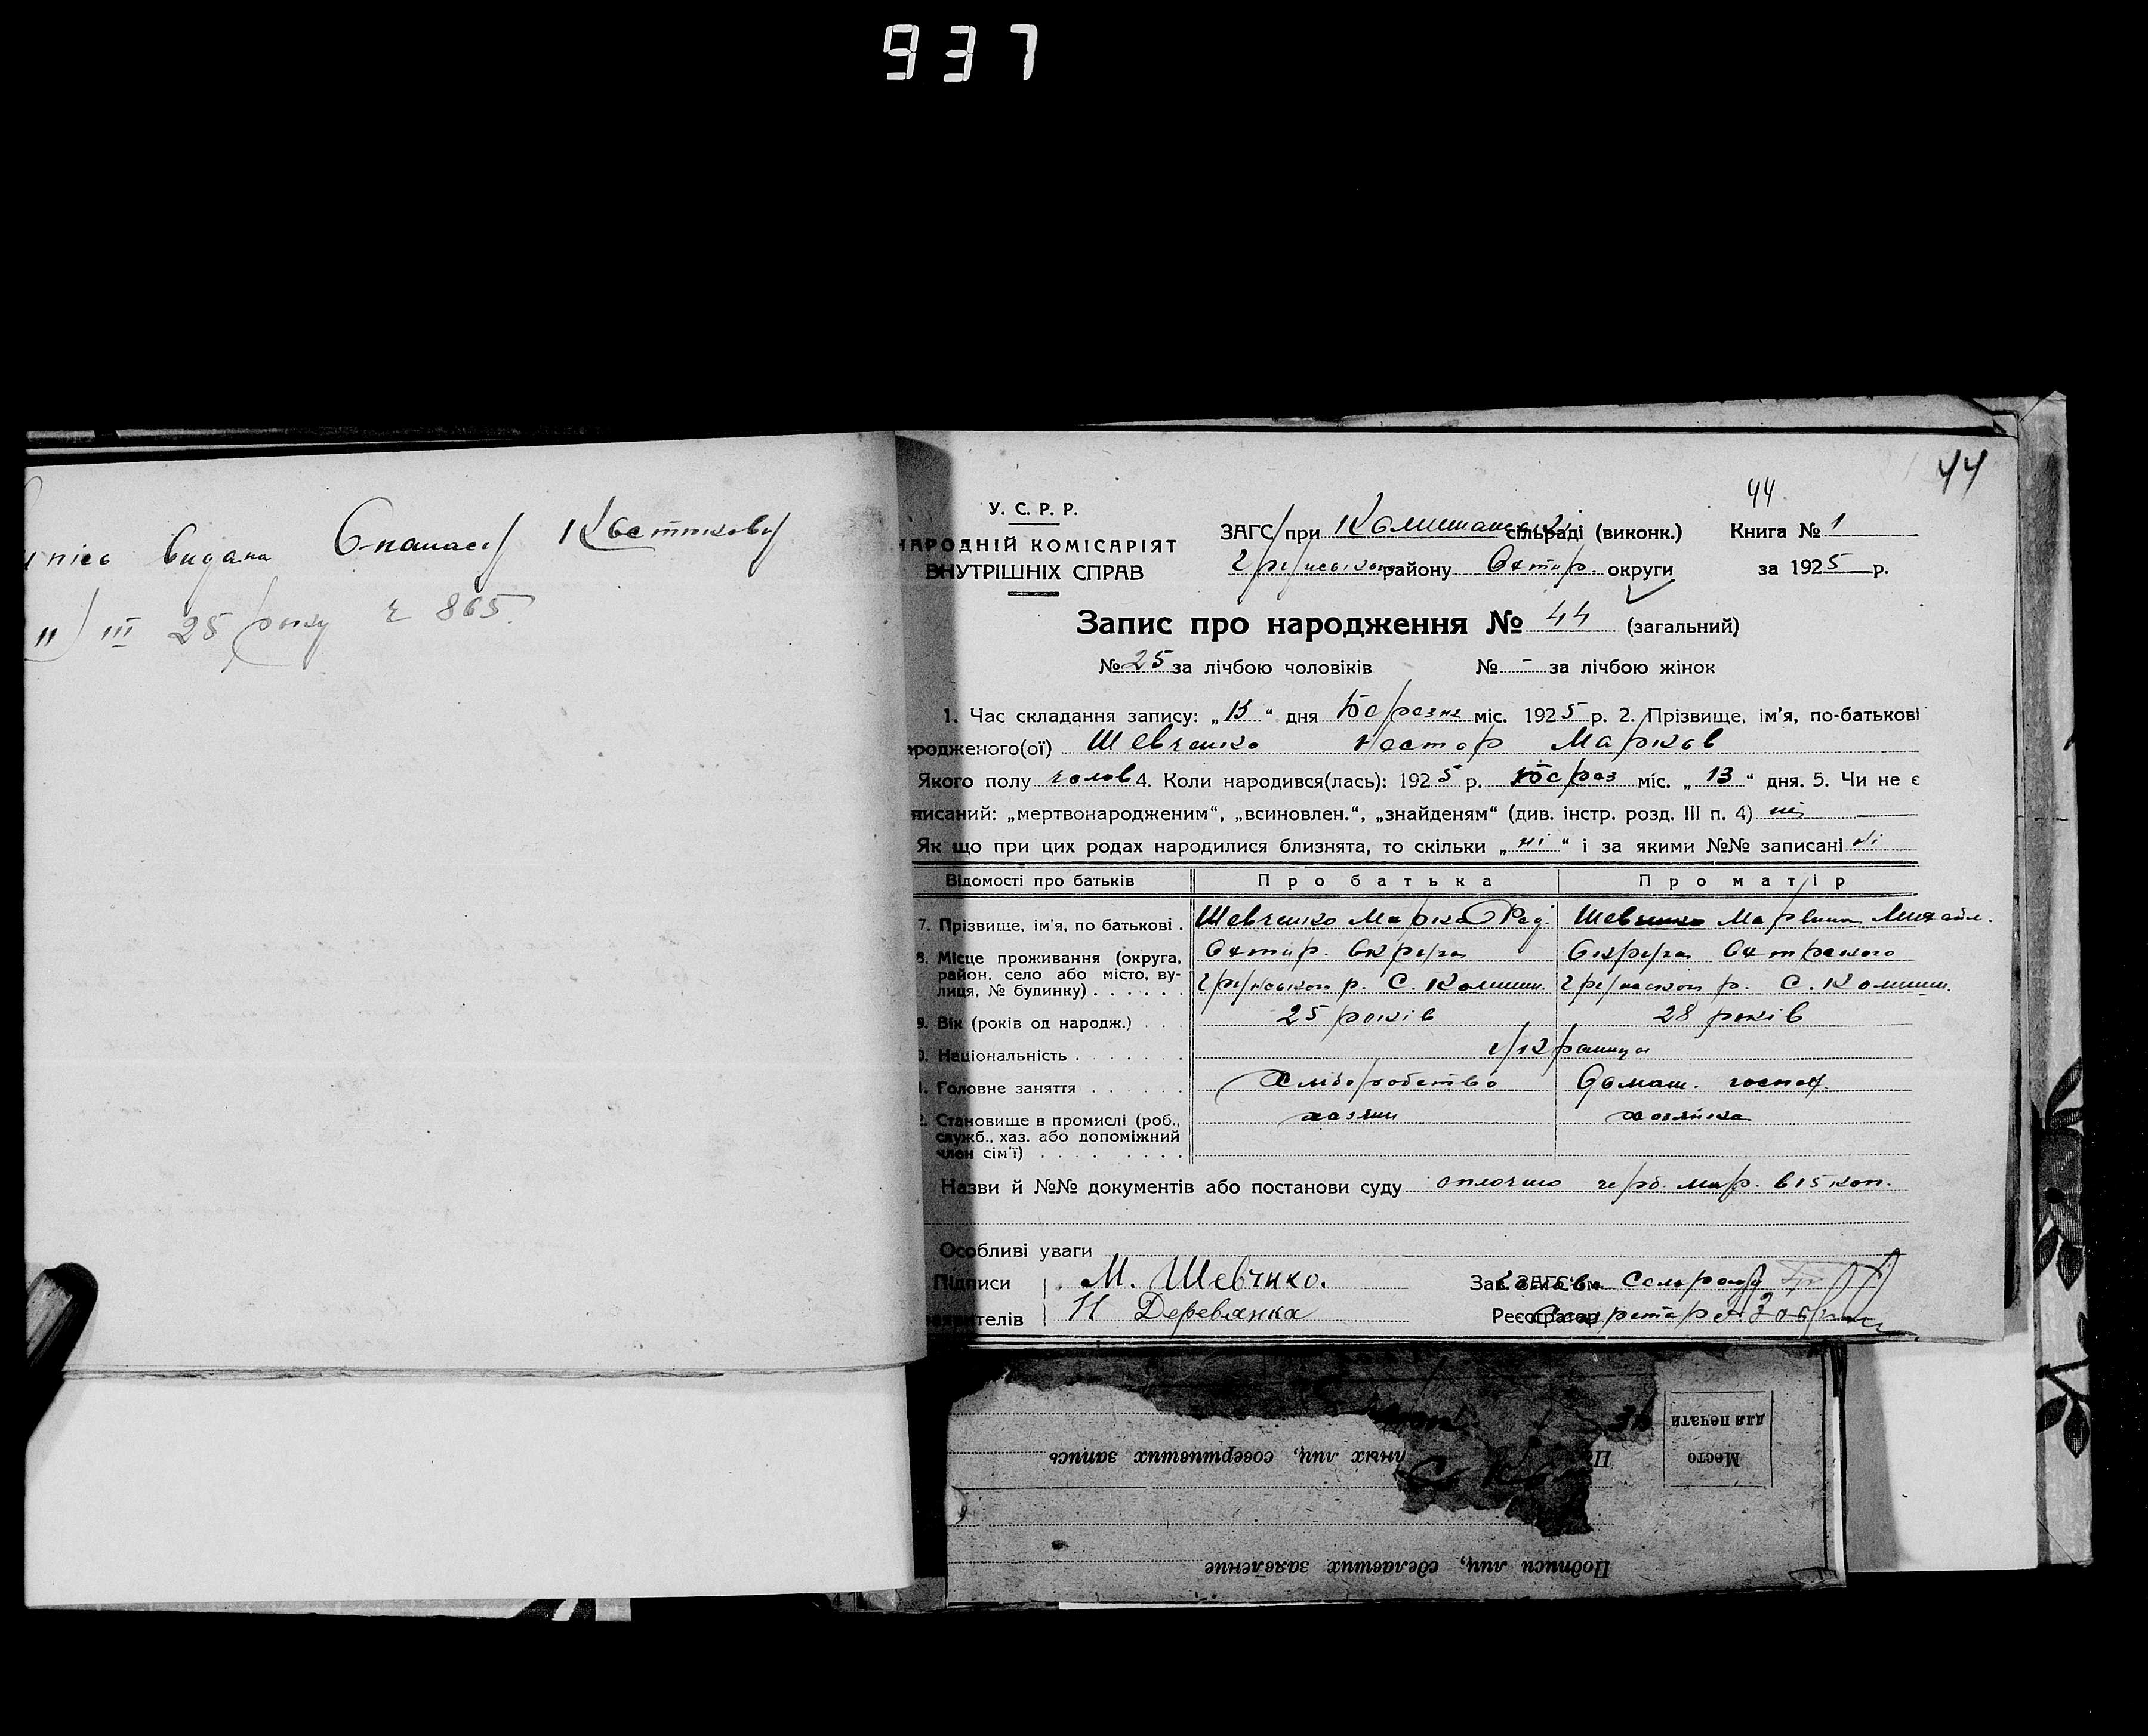 937
видана Опанасу Костикову
11/III 25 року ч 865.
44
44.
У. С. Р. Р.
НАРОДНІЙ КОМІСАРІЯТ
ВНУТРІШНІХ СПРАВ
ЗАГС при Комишанськ сільраді (виконк.) Книга № 1
району Охтир. округи за 1925 р.
Запис про народження № 44 (загальний)
№ 25 за лічбою чоловіків № - за лічбою жінок
1. Час складання запису: „13“ дня Березня міс. 1925 р. 2. Прізвище, ім'я, по-батькові
ародженого(ої) Шевченко Нестор Марков
Якого полу чолов 4. Коли народився(лась): 1925 р. берез міс. „13“ дня. 5. Чи не є
писаний: „мертвонародженим“, „всиновлен.“, „знайденям“ (див. інстр. розд. III п. 4) ні
Як що при цих родах народилися близнята, то скільки „ні“ і за якими №№ записані ні
Відомості про батьків Про батька Про матір
7. Прізвище, ім'я, по батькові . Шевченко Марко Род. Шевченко Марвина Михайл.
8. Місце проживання (округа, Охтир. округа округа Охтрского
район, село або місто, ву-
лиця, № будинку) . . . . . . р. С. Комиш. р. С. Комиш.
9. Вік (років од народж.) . . . 25 років 28 років
0. Національність . . . . . . . українці
1. Головне заняття . . . . . . хліборобство домаш. господ
2. Становище в промислі (роб., хазяин хозяйка
служб., хаз. або допоміжний
член сім'ї) . . . . . . . . .
Назви й №№ документів або постанови суду оплочно герб. мар. в 15 коп.
Особливі уваги
Підписи М. Шевчнко. Зав. ЗАГС'ом Голова Сельради
явителів Н Деревянка Реєстратор Секретарь
Место
для печати
нных лиц, совершивших запись
Подписи лиц, сделавших заявление